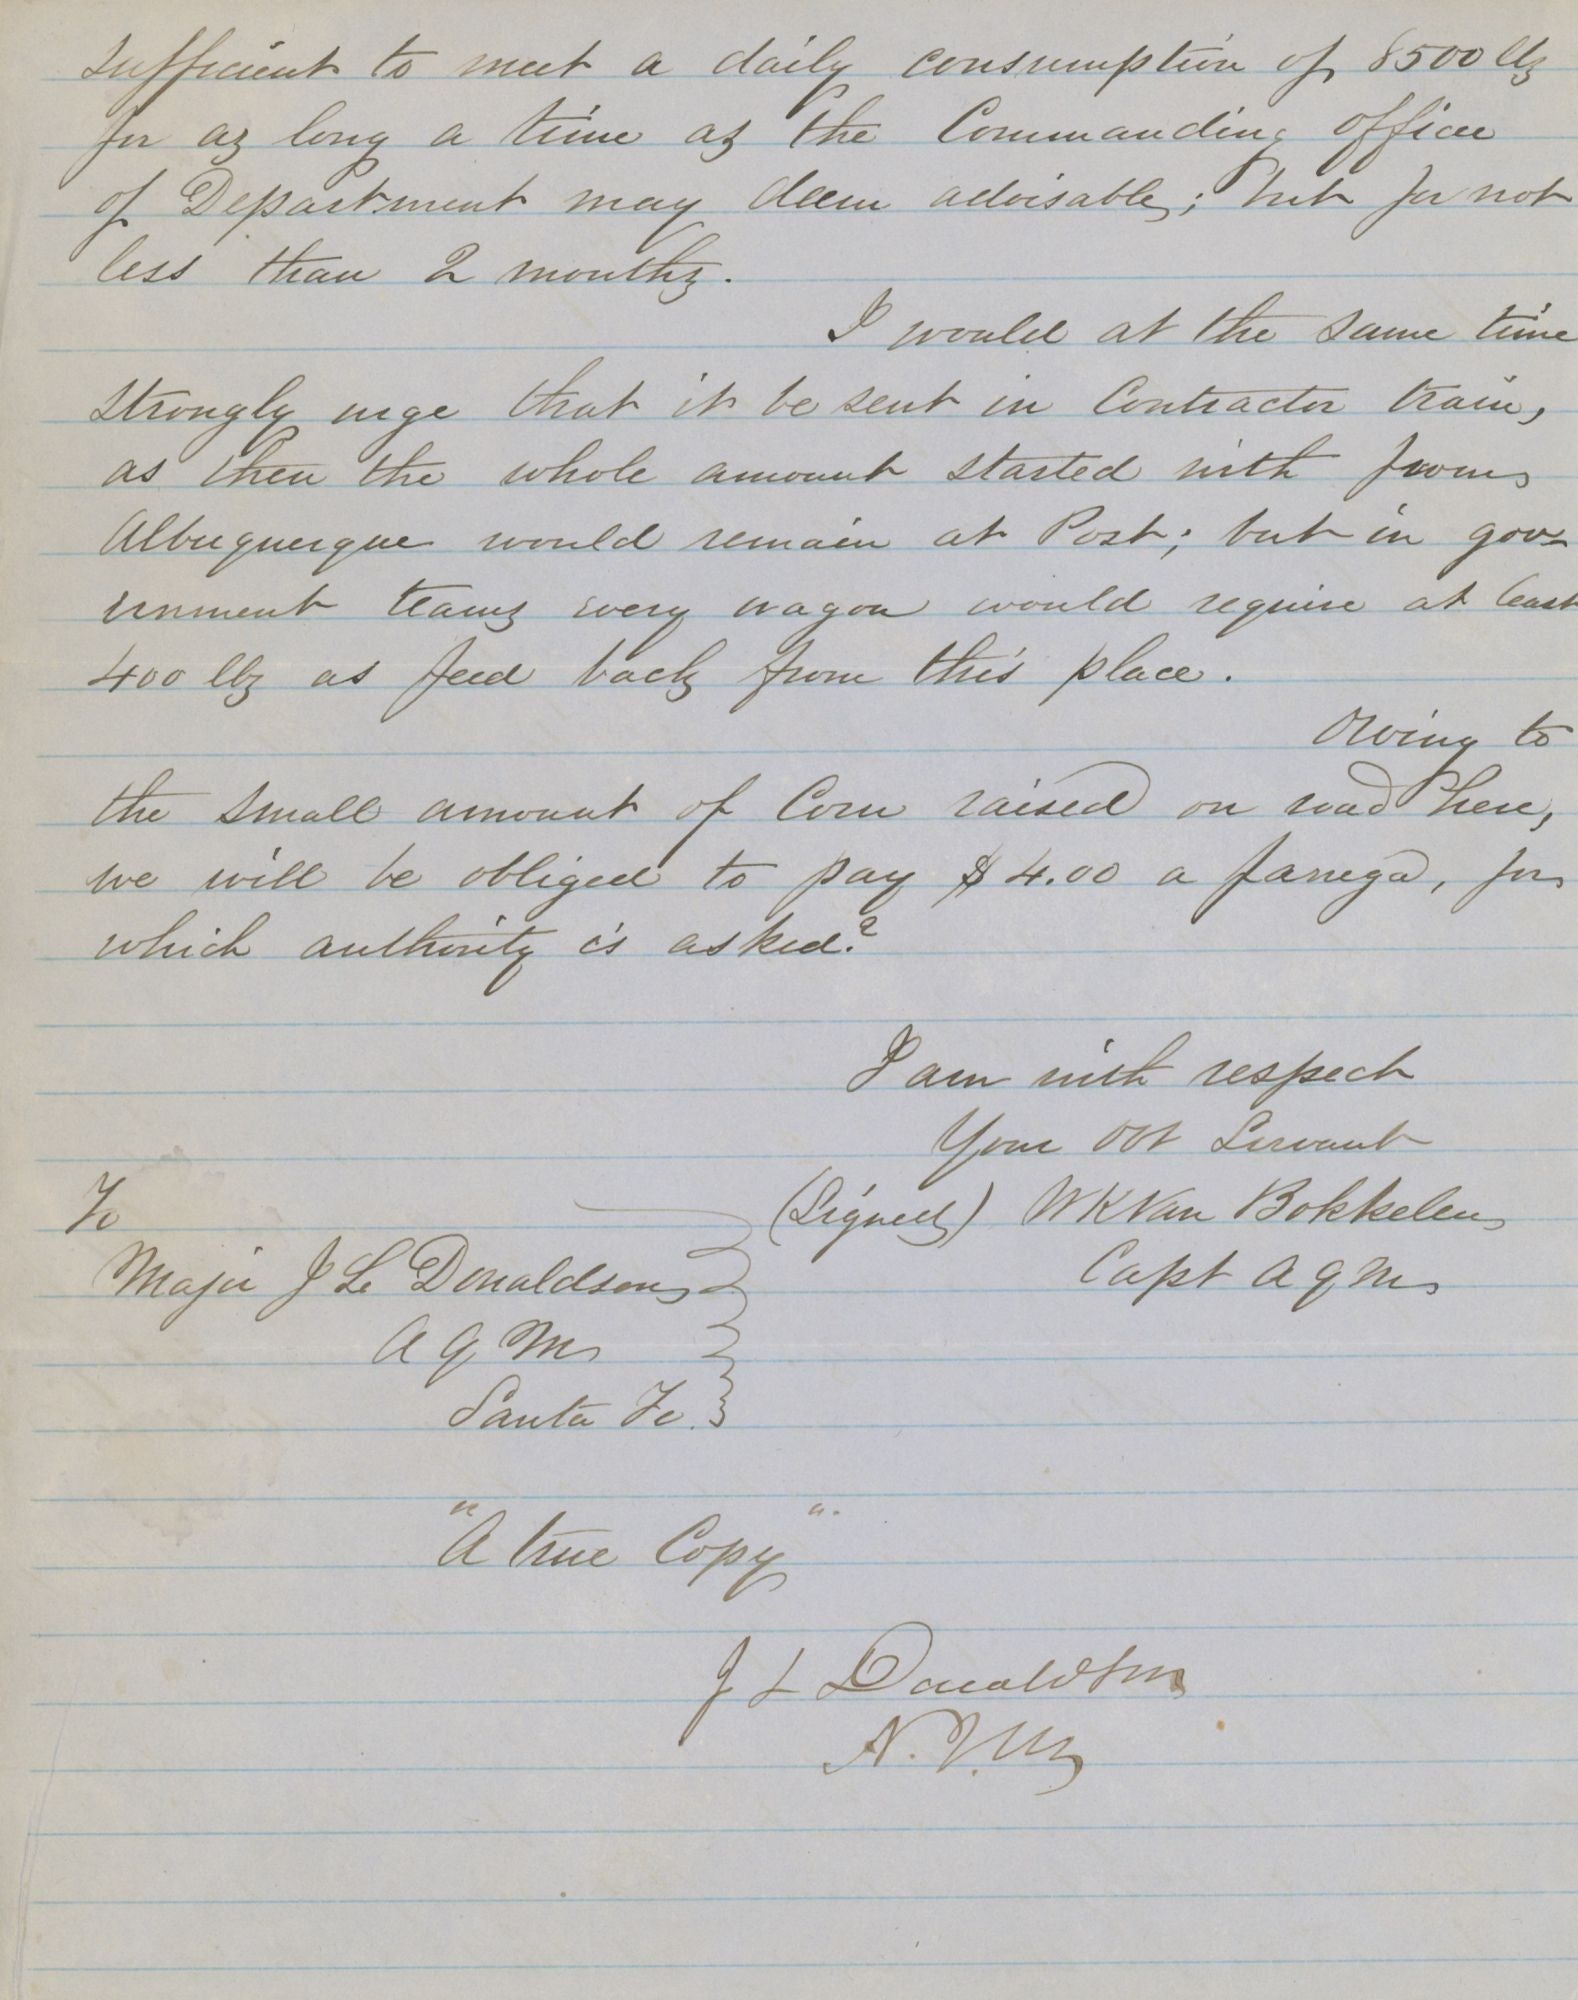 sufficient to meet a daily consumption of 8500 lbs
for as long a time as the Commanding officer
of Department may deem advisable; but for not
less than 2 months.
I would at the same time
strongly urge that it be sent in Contractor train,
as then the whole amount started with from
Albuquerque would remain at Post; but in gov-
ernment teams every wagon would require at least
400 lbs as feed back from this place.
Owing to
the small amount of Corn raised on road here,
we will be obliged to pay $4.00 a fanega, for
which authority is asked?
I am with respect
Your Obt Servant
(Signed) W K Van Bokkelen
Capt A Q M
To
Major J L Donaldson
A Q M
Santa Fe.
"A true Copy".
J L Donaldson